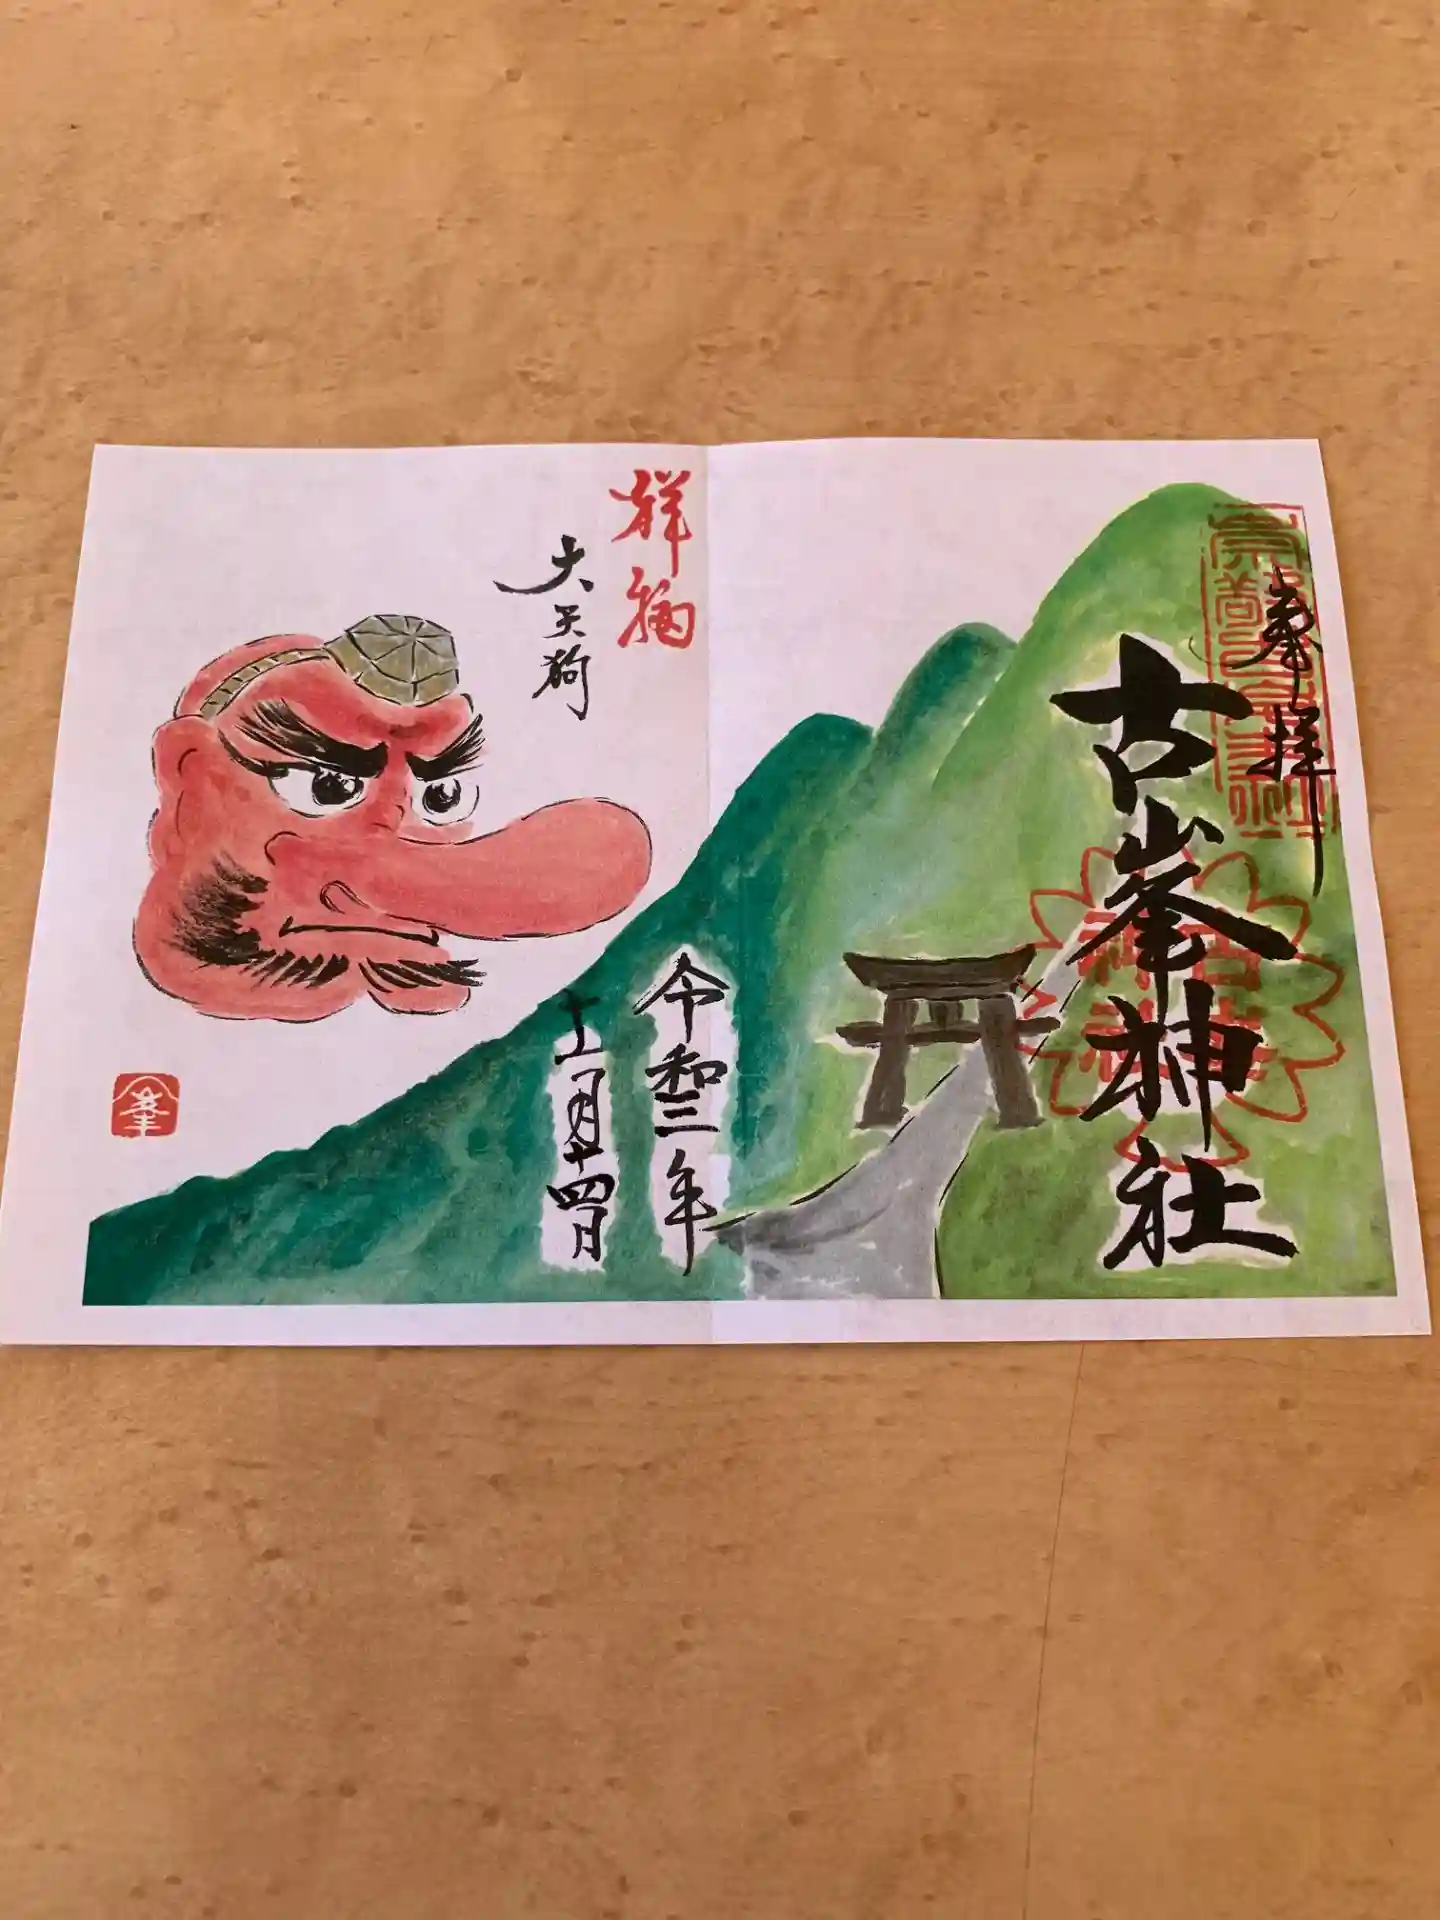 奉拝
古峯神社
令和三年
十一月十四日
祥福
大天狗
峯